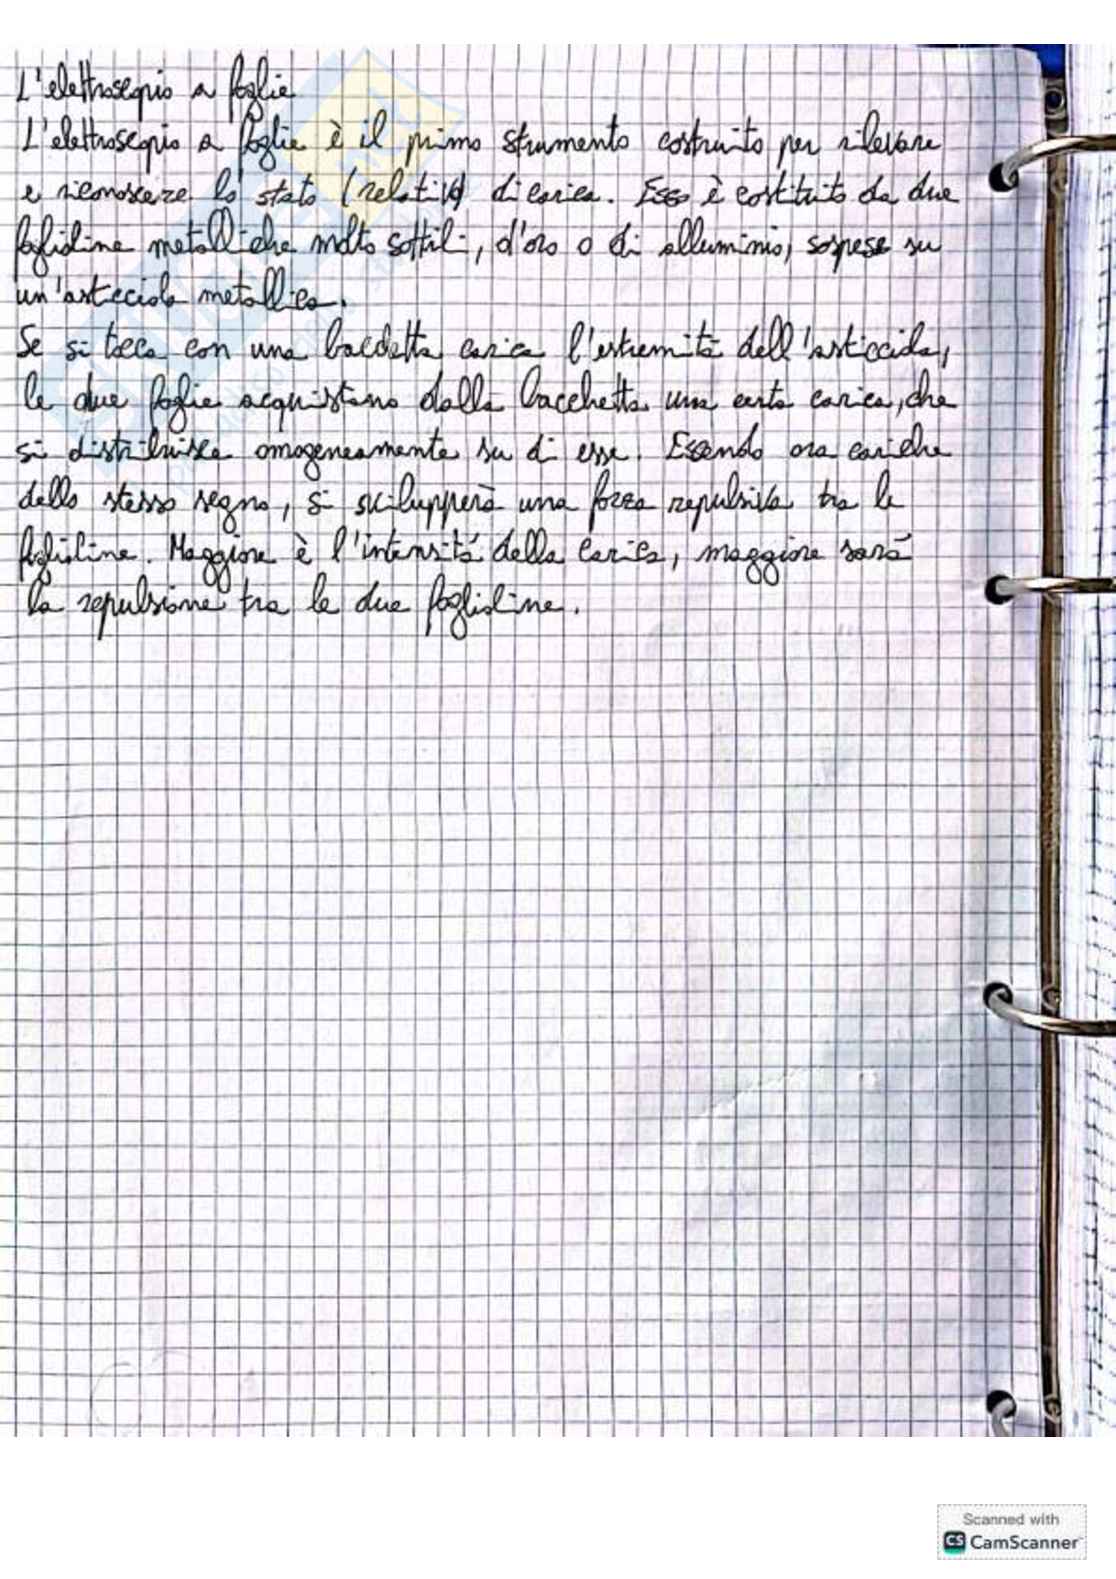 L'elettroscopio a foglie
L'elettroscopio a foglie è il primo strumento costruito per rilevare
e riconoscere lo stato (relativo) di carica. Esso è costituito da due
foglioline metalliche molto sottili, d'oro o di alluminio, sospese su
un'asticciola metallica.
Se si tocca con una bacchetta carica l'estremità dell'asticciola,
le due foglie acquistano dalla bacchetta una certa carica, che
si distribuisce omogeneamente su di esse. Essendo ora cariche
dello stesso segno, si svilupperà una forza repulsiva tra le
foglioline. Maggiore è l'intensità della carica, maggiore sarà
la repulsione tra le due foglioline.
Scanned with
CS CamScanner